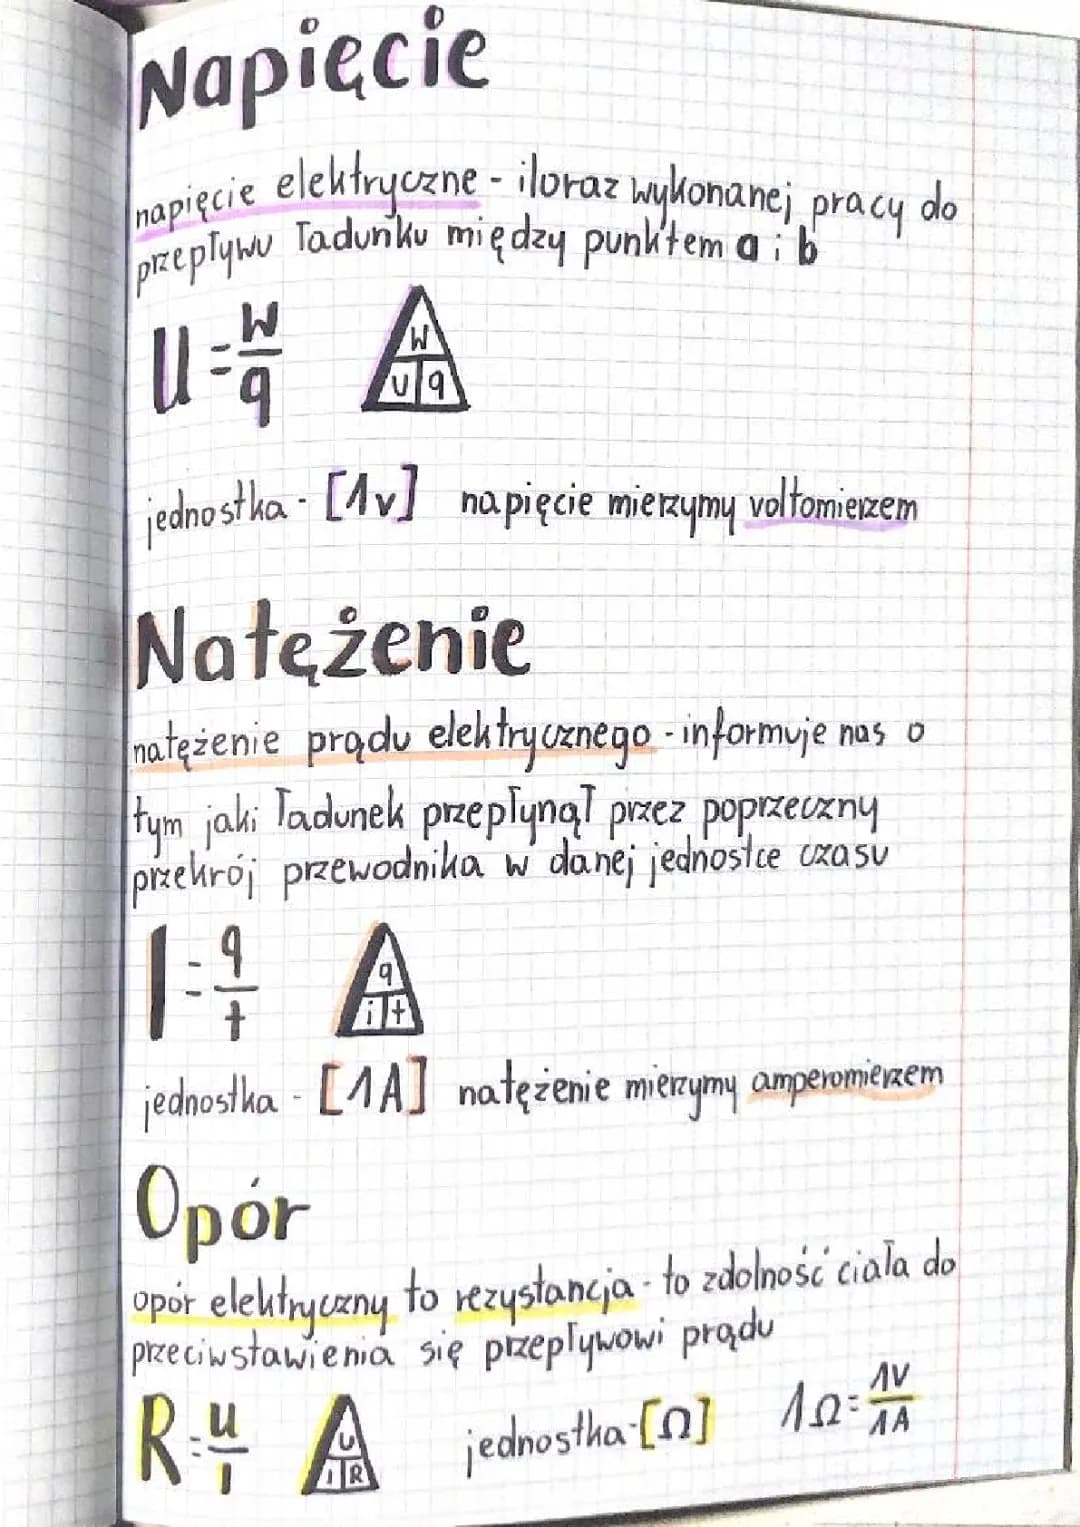 Napięcie
napięcie elektryczne - iloraz wykonanej pracy do
przepływu ładunku między punktem a i b
U = W/q
W
U q
jednostka - [1v] napięcie mierzymy voltomierzem
Natężenie
natężenie prądu elektrycznego - informuje nas o
tym jaki ładunek przepłynął przez poprzeczny
przekrój przewodnika w danej jednostce czasu
I = q/t
q
i t
jednostka - [1A] natężenie mierzymy amperomierzem
Opór
opór elektryczny to rezystancja - to zdolność ciała do
przeciwstawienia się przepływowi prądu
R = U/I
U
I R
jednostka - [Ω] 1Ω = 1V/1A